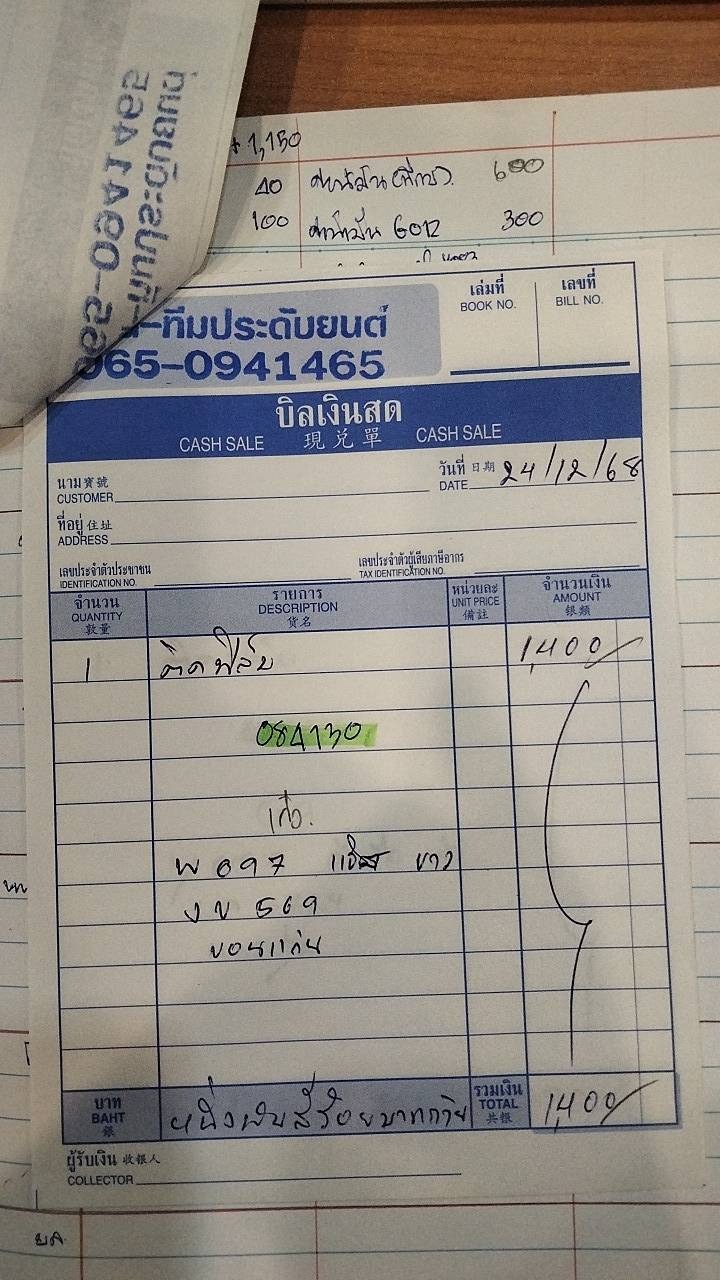 1,150
40 600
100 ค่าน้ำมัน 300
-ทีมประดับยนต์
065-0941465
เล่มที่
BOOK NO.
เลขที่
BILL NO.
บิลเงินสด
CASH SALE 現兌單 CASH SALE
นาม 寶號
CUSTOMER
วันที่ 日期 24/12/68
DATE
ที่อยู่ 住址
ADDRESS
เลขประจำตัวประชาชน
IDENTIFICATION NO.
เลขประจำตัวผู้เสียภาษีอากร
TAX IDENTIFICATION NO.
จำนวน
QUANTITY
數量
รายการ
DESCRIPTION
貨名
หน่วยละ
UNIT PRICE
備註
จำนวนเงิน
AMOUNT
銀額
1 ติดฟิล์ม 1,400
084130
เก๋ง.
พ 097 ขาว
งข 569
ขอนแก่น
บาท
BAHT
銀
หนึ่งพันสี่ร้อยบาทถ้วน
รวมเงิน
TOTAL
共銀
1,400
ผู้รับเงิน 收銀人
COLLECTOR